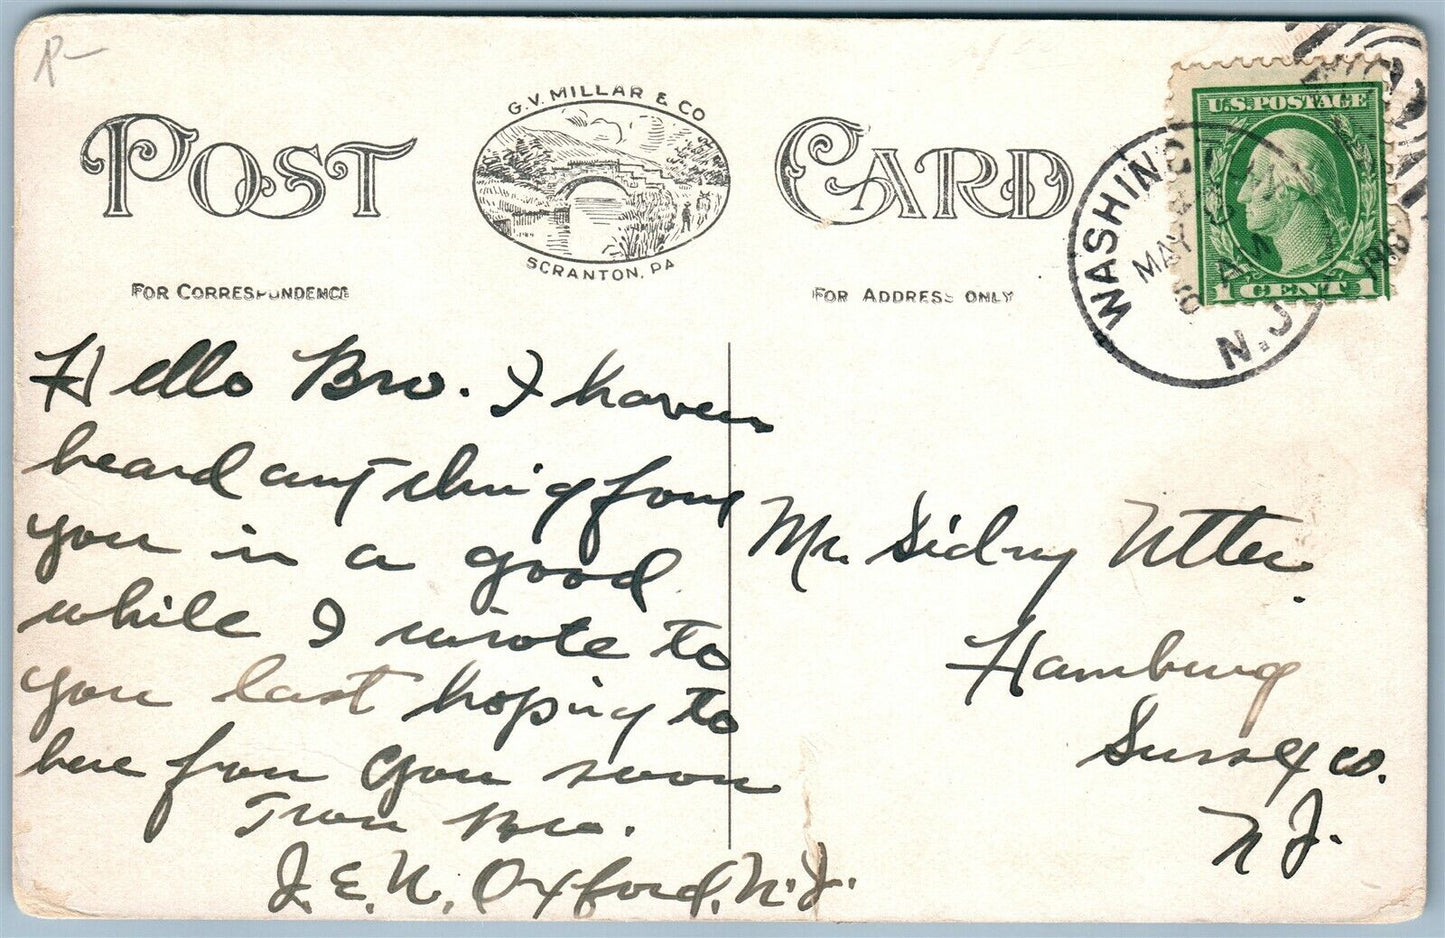 POST CARD
G.V. MILLAR & CO
SCRANTON, PA
FOR CORRESPONDENCE
FOR ADDRESS ONLY
U.S. POSTAGE
1 CENT 1
MAY
AM
N.J.
Hello Bro. I haven
heard any thing from
you in a good
while I wrote to
you last hoping to
here from you soon
From Bro.
J. E. U. Oxford, N.J.
Mr. Sidney Utter
Hamburg
Sussex co.
N J.